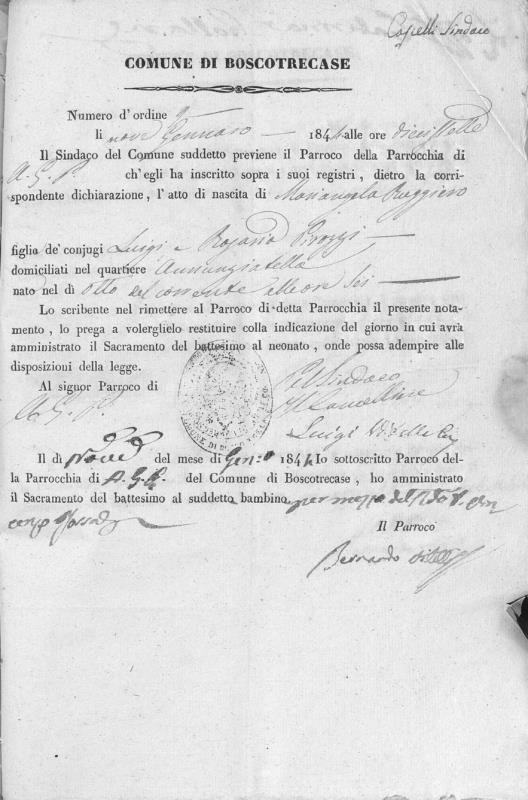 Capelli Sindaco
COMUNE DI BOSCOTRECASE
Numero d'ordine
li nove Gennaro 184 alle ore
Il Sindaco del Comune suddetto previene il Parroco della Parrocchia di
A. G. P. ch'egli ha inscritto sopra i suoi registri, dietro la corri-
spondente dichiarazione, l'atto di nascita di Mariangela Ruggiero
figlia de' conjugi Luigi e Rosaria Pirozzi
domiciliati nel quartiere Annunziatella
nato nel dì otto del corrente alle ore sei
Lo scribente nel rimettere al Parroco di detta Parrocchia il presente nota-
mento, lo prega a volerglielo restituire colla indicazione del giorno in cui avrà
amministrato il Sacramento del battesimo al neonato, onde possa adempire alle
disposizioni della legge.
Al signor Parroco di
A. G. P.
Il Sindaco
Il Cancelliere
Luigi
Il dì nove del mese di Gen.o 184 Io sottoscritto Parroco del-
la Parrocchia di A. G. P. del Comune di Boscotrecase, ho amministrato
il Sacramento del battesimo al suddetto bambino per mezzo del
Il Parroco
Bernardo